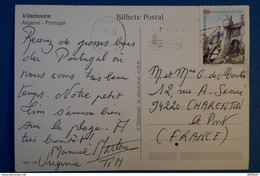 Vilamoura
Algarve - Portugal
Bilhete Postal
Recevez de grosses bises
du Portugal où
nous avons très beau
temps. Notre petit
Tim s'amuse bien
sur la plage. A
très bientôt!
Manuel
Virginie
Tim
M et Mme C. de
12, rue A.
94220 CHARENTON
le Pont
(FRANCE)